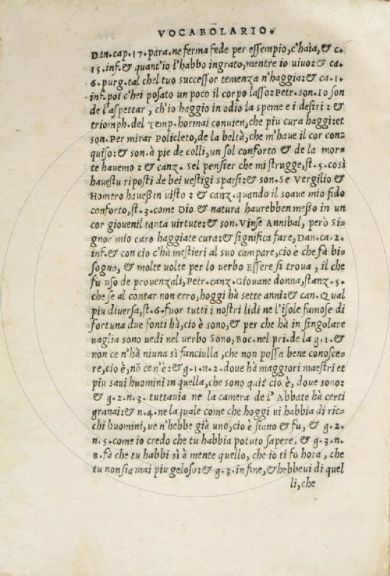 VOCABOLARIO.
Dan. cap. 17. para. ne ferma fede per essempio, c'haia, & c.
15. inf. & quant'io l'habbo ingrato, mentre io viuo: & ca.
6. purg. tal chel tuo successor temenza n'haggia: & ca. 1.
inf. poi c'hei posato un poco il corpo lasso: Petr. son. Io son
de l'aspettar, ch'io haggio in odio la speme e i desiri: &
triomph. del Temp. hormai conuien, che piu cura haggi: et
son. Per mirar Policleto, de la beltà, che m'haue il cor con=
quiso: & son. à pie de colli, un sol conforto & de la mor=
te hauemo: & canz. Sel pensier che mi strugge, st. 5. così
hauestu riposti de bei uestigi sparsi: & son. Se Vergilio &
Homero haueßin uisto: & canz. quando il soaue mio fido
conforto, st. 3. come Dio & natura haurebben meßo in un
cor giouenil tanta uirtute: & son. Vinse Annibal, però Si=
gnor mio caro haggiate cura: & significa fare, Dan. ca. 2.
inf. & con cio c'hà mestieri al suo campare, cio è che fà bi=
sogno, & molte volte per lo uerbo Essere si troua, il che
fu uso de prouenzali, Petr. canz. Giouane donna, stanz. 5.
che se al contar non erro, hoggi hà sette anni: & can. Qual
piu diuersa, st. 6. Fuor tutti i nostri lidi ne l'isole famose di
fortuna due fonti hà, cio è sono, & per che hà in singolare
uaglia sono uedi nel uerbo Sono, Boc. nel pri. de la g. 1. &
non ce n'hà niuna sì fanciulla, che non possa bene conosce=
re, cio è, nō ce n'è: & g. 1. n. 2. doue hà maggiori maestri et
piu saui huomini in quella, che sono qui? cio è, doue sono:
& g. 2. n. 3. tuttauia ne la camera de l'Abbate hà certi
granai: & n. 4. ne la quale come che hoggi ui habbia di ric=
chi huomini, ue n'hebbe già uno, cio è siano & fu, & g. 2.
n. 5. come io credo che tu habbia potuto sapere, & g. 3. n.
8. fà che tu habbi sì à mente quello, che io ti fo hora, che
tu non sia mai piu geloso: & g. 3. in fine, & hebbeui di quel
li, che